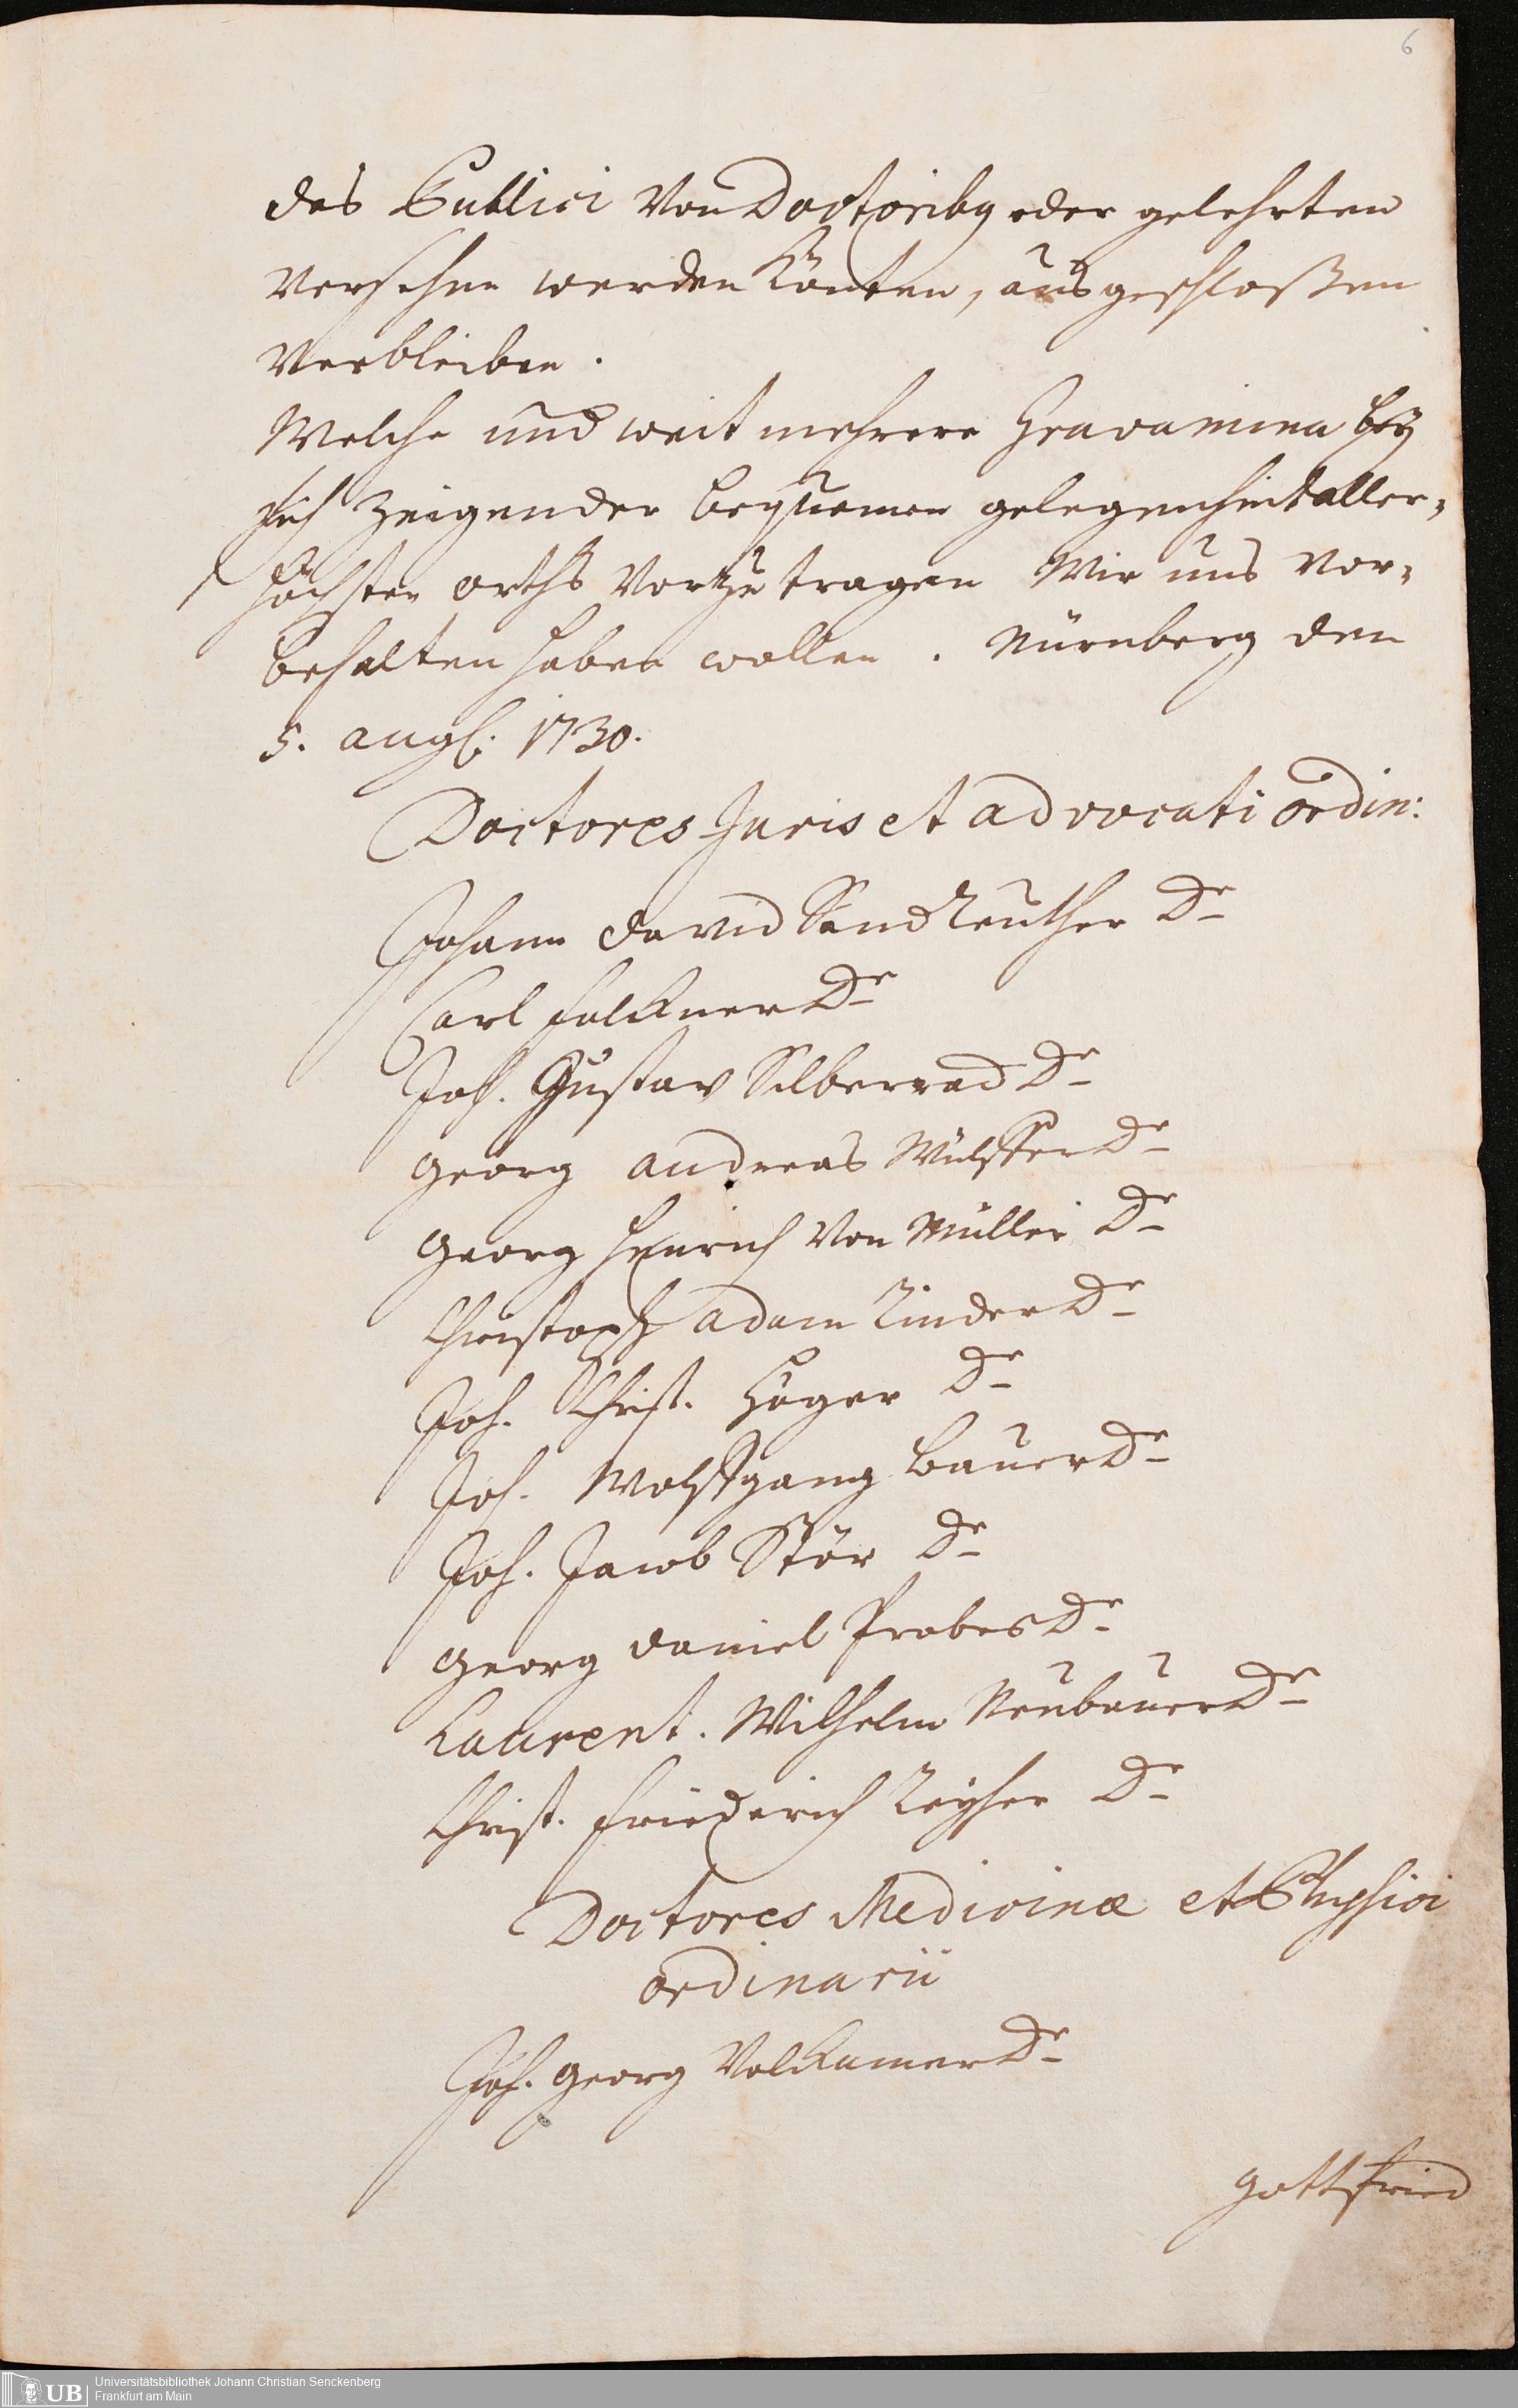 6
des Publici von Doctoribq oder gelehrten
versehen werden könten, ausgeschloßen
verbleiben.
Welche und weit mehrere Gravamina bey
sich zeigender bequemer gelegenheit aller-
höchsten orths vorzutragen Wir uns vor-
behalten haben wollen. Nürnberg den
5. aug. 1730.
Doctores Juris et advocati ordin:
Johann David Sandreuther Dr
Carl Falckner Dr
Joh. Gustav Silberrad Dr
Georg Andreas Wülffer Dr
Georg Henrich von Müller Dr
Christoph Adam Rinder Dr
Joh. Christ. Höger Dr
Joh. Wolffgang Bauer Dr
Joh. Jacob Stör Dr
Georg Daniel Probes Dr
Laurent. Wilhelm Neubauer Dr
Christ. Friederich Leyser Dr
Doctores Medicinæ et Physici
ordinarii
Joh. Georg Volckamer Dr
Gottfried
UB
Universitätsbibliothek Johann Christian Senckenberg
Frankfurt am Main